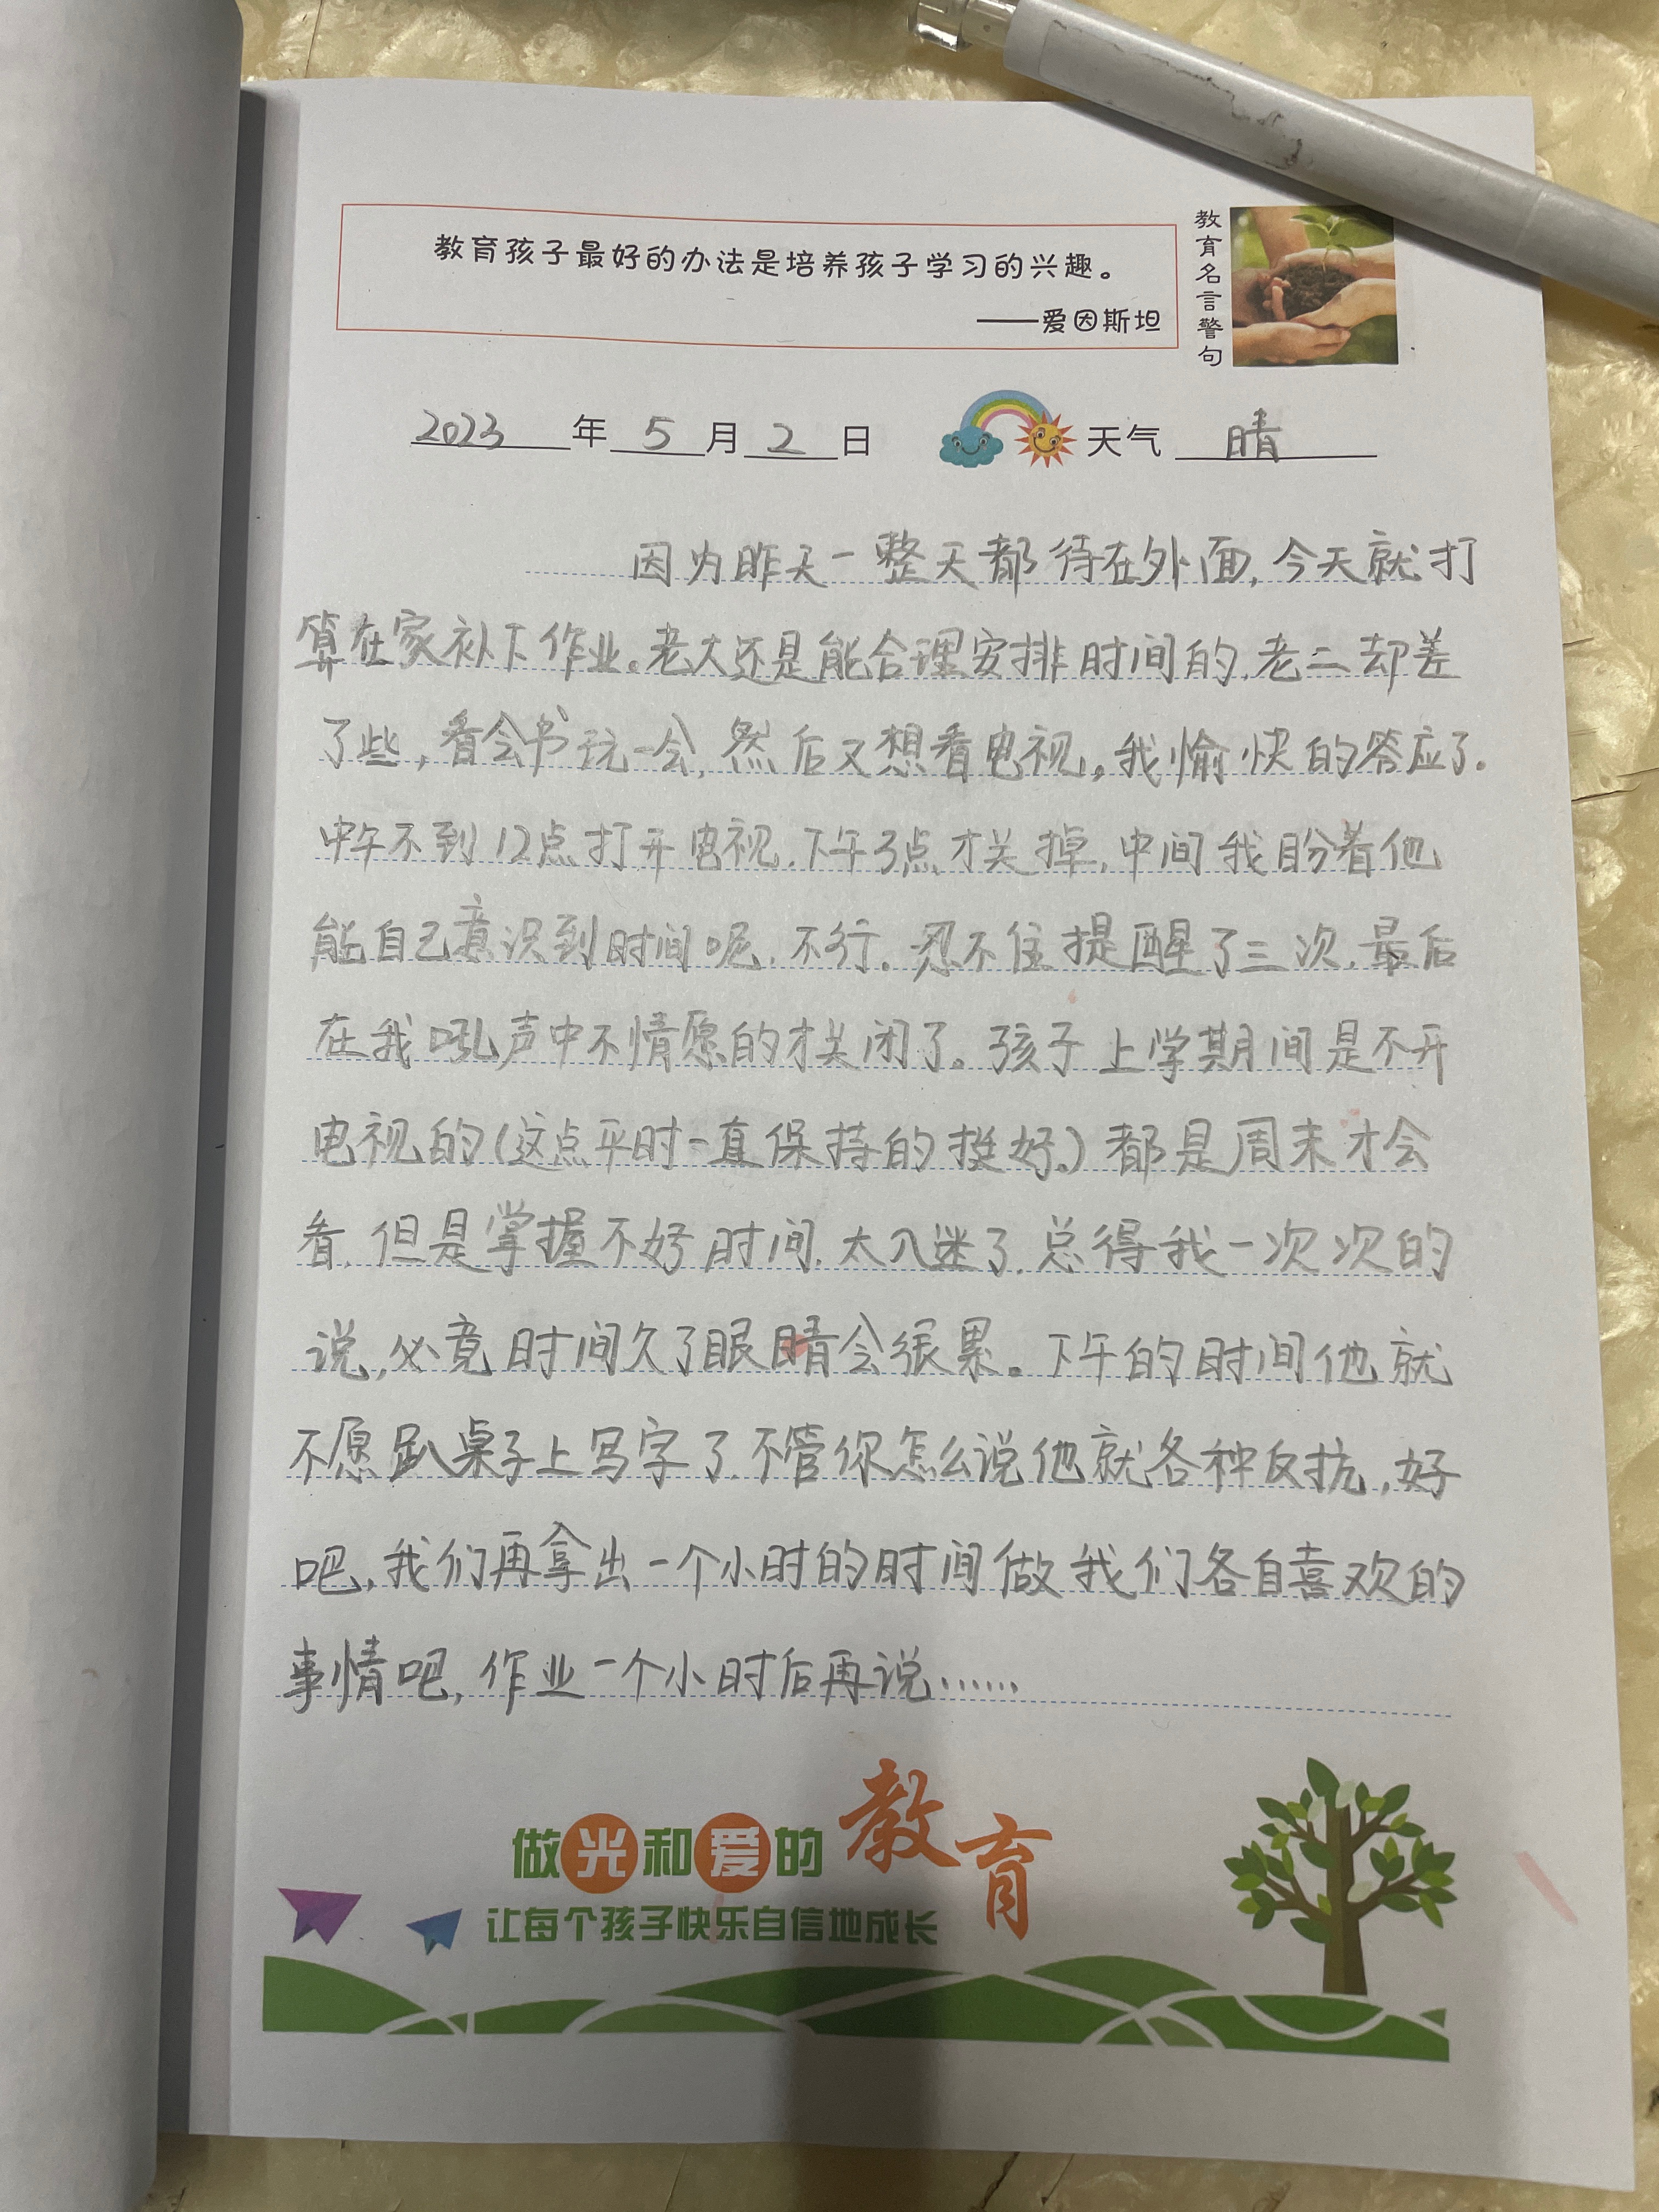 教育孩子最好的办法是培养孩子学习的兴趣。
——爱因斯坦
教育名言警句
2023年5月2日 天气 晴
因为昨天一整天都待在外面,今天就打
算在家补下作业。老大还是能合理安排时间的,老二却差
了些,看会书玩一会,然后又想看电视。我愉快的答应了。
中午不到12点打开电视,下午3点才关掉,中间我盼着他
能自己意识到时间呢,不行。忍不住提醒了三次,最后
在我吼声中不情愿的才关闭了。孩子上学期间是不开
电视的(这点平时一直保持的挺好。)都是周末才会
看,但是掌握不好时间,太入迷了,总得我一次次的
说,必竟时间久了眼睛会很累。下午的时间他就
不愿趴桌子上写字了,不管你怎么说他就各种反抗,好
吧,我们再拿出一个小时的时间做我们各自喜欢的
事情吧,作业一个小时后再说……
做光和爱的教育
让每个孩子快乐自信地成长